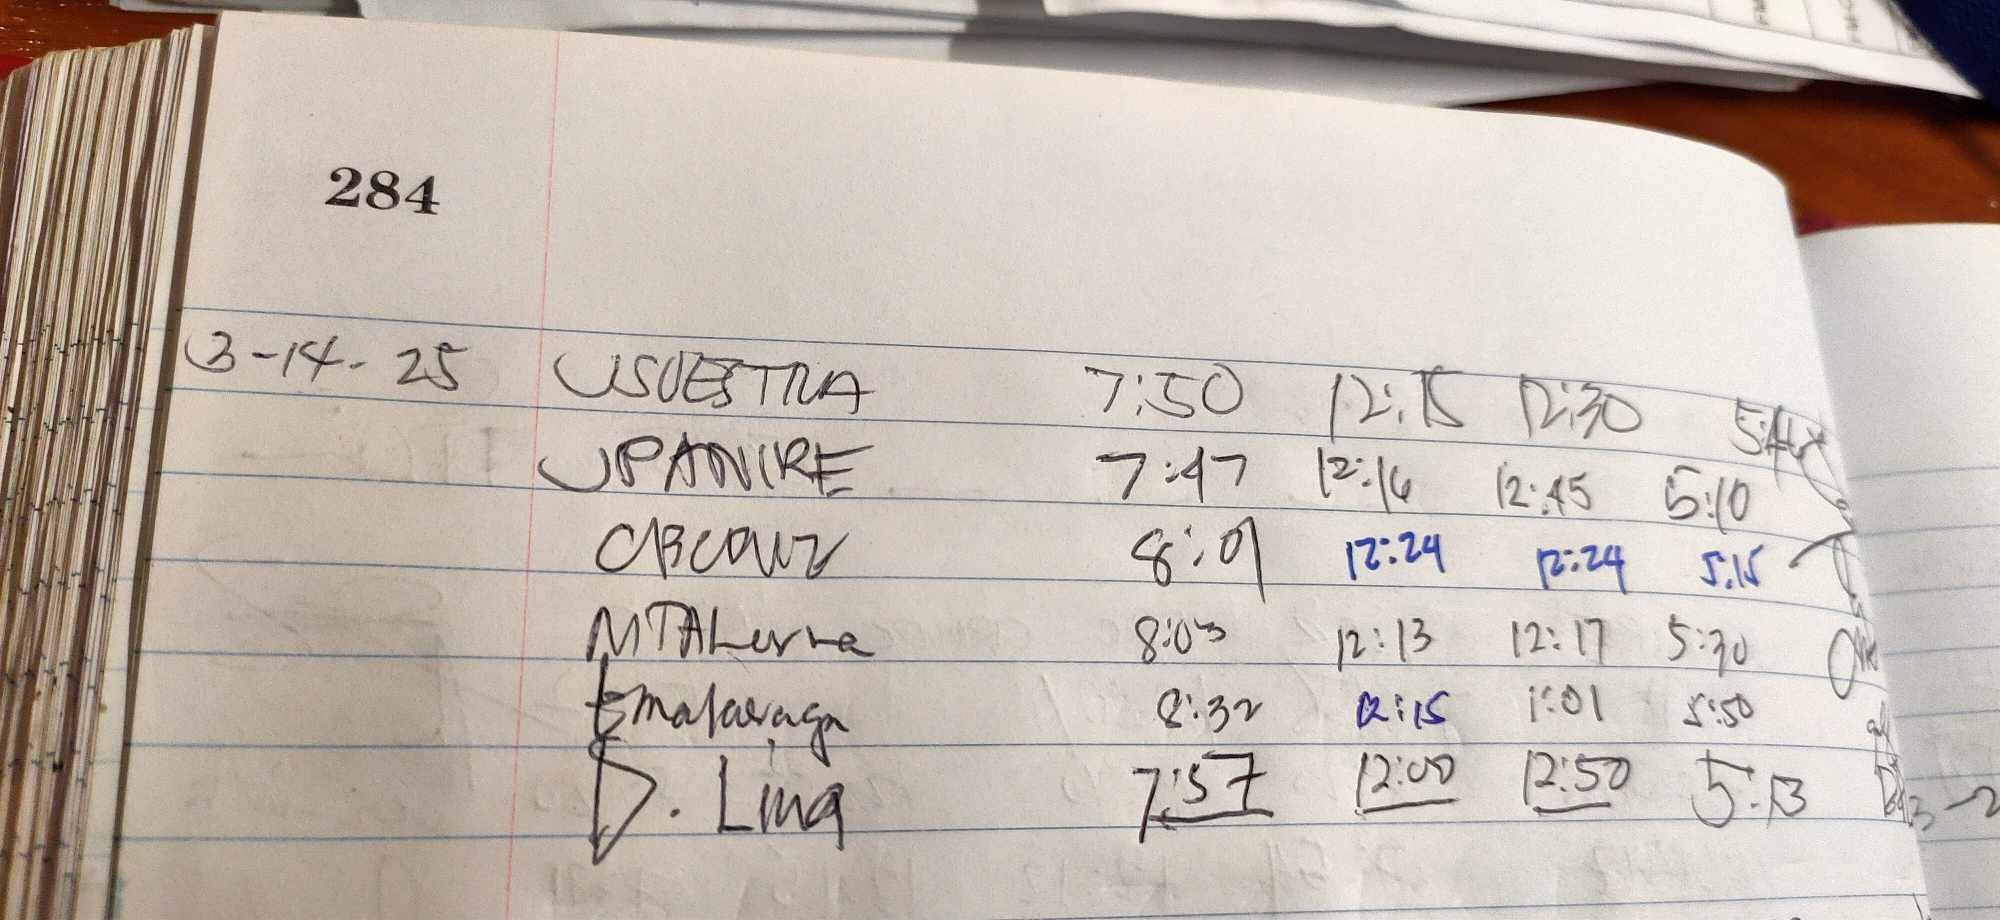 284
3-14-25 JSVESTRA 7:50 12:15 12:30
JPANIRE 7:47 12:16 12:45 5:10
8:01 12:24 12:24 5:15
8:03 12:13 12:17 5:30
8:32 12:15 1:01 5:50
D. Ling 7:57 12:00 12:50 5:13